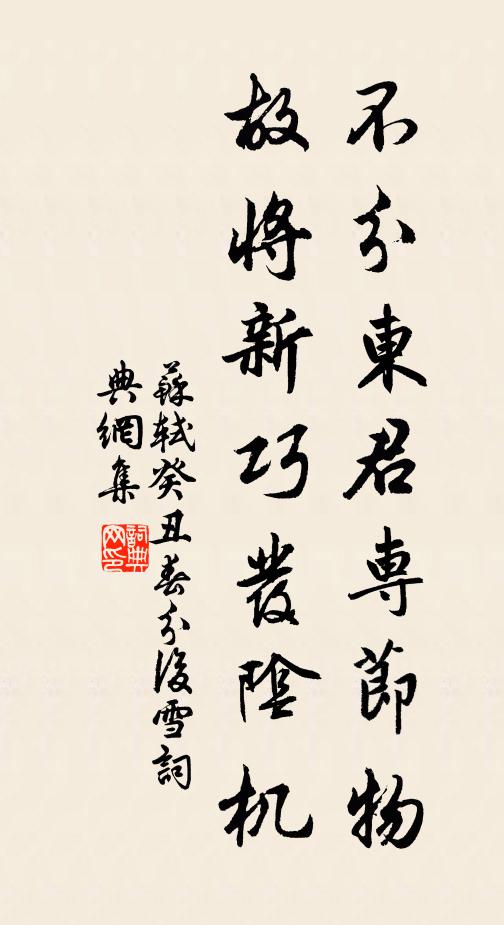 不分東君專節物
故將新巧發陰机
蘇軾癸丑春分後雪詞
典網集
詞典
网印